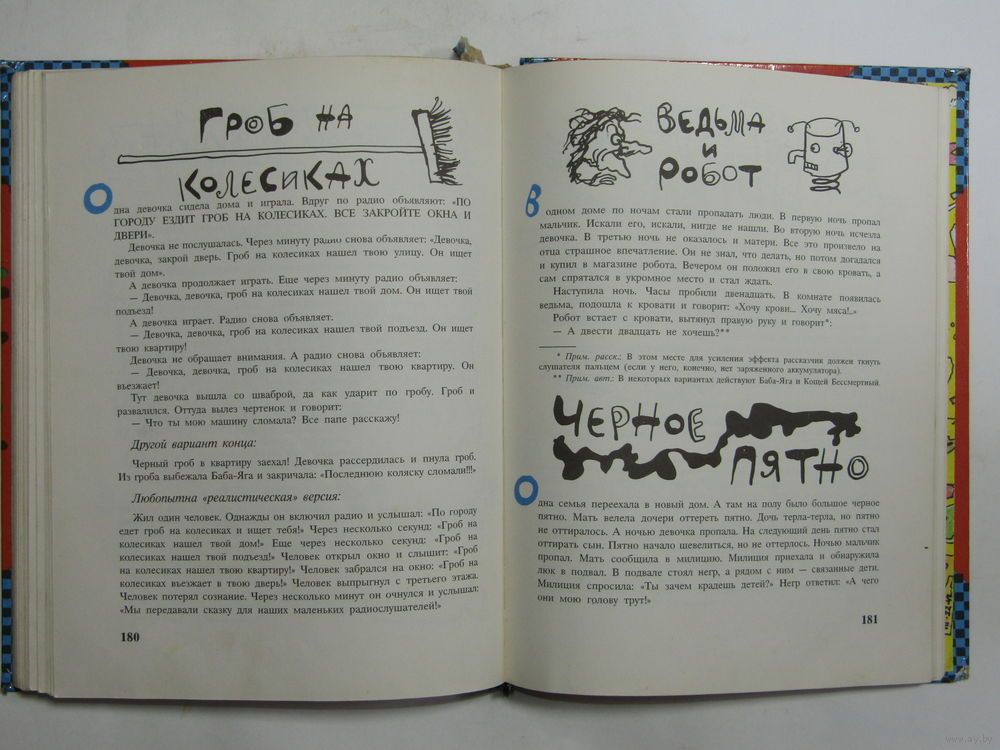 ГРОБ НА
КОЛЕСИКАХ
Одна девочка сидела дома и играла. Вдруг по радио объявляют: «ПО
ГОРОДУ ЕЗДИТ ГРОБ НА КОЛЕСИКАХ. ВСЕ ЗАКРОЙТЕ ОКНА И
ДВЕРИ».
Девочка не послушалась. Через минуту радио снова объявляет: «Девочка,
девочка, закрой дверь. Гроб на колесиках нашел твою улицу. Он ищет
твой дом».
А девочка продолжает играть. Еще через минуту радио объявляет:
— Девочка, девочка, гроб на колесиках нашел твой дом. Он ищет твой
подъезд!
А девочка играет. Радио снова объявляет.
— Девочка, девочка, гроб на колесиках нашел твой подъезд. Он ищет
твою квартиру!
Девочка не обращает внимания. А радио снова объявляет:
— Девочка, девочка, гроб на колесиках нашел твою квартиру. Он
въезжает!
Тут девочка вышла со шваброй, да как ударит по гробу. Гроб и
развалился. Оттуда вылез чертенок и говорит:
— Что ты мою машину сломала? Все папе расскажу!
Другой вариант конца:
Черный гроб в квартиру заехал! Девочка рассердилась и пнула гроб.
Из гроба выбежала Баба-Яга и закричала: «Последнюю коляску сломали!!!»
Любопытна «реалистическая» версия:
Жил один человек. Однажды он включил радио и услышал: «По городу
едет гроб на колесиках и ищет тебя!» Через несколько секунд: «Гроб на
колесиках нашел твой дом!» Еще через несколько секунд: «Гроб на
колесиках нашел твой подъезд!» Человек открыл окно и слышит: «Гроб
на колесиках нашел твою квартиру!» Человек забрался на окно: «Гроб на
колесиках въезжает в твою дверь!» Человек выпрыгнул с третьего этажа.
Человек потерял сознание. Через несколько минут он очнулся и услышал:
«Мы передавали сказку для наших маленьких радиослушателей!»
180
ВЕДЬМА
И
РОБОТ
В одном доме по ночам стали пропадать люди. В первую ночь пропал
мальчик. Искали его, искали, нигде не нашли. Во вторую ночь исчезла
девочка. В третью ночь не оказалось и матери. Все это произвело на
отца страшное впечатление. Он не знал, что делать, но потом догадался
и купил в магазине робота. Вечером он положил его в свою кровать, а
сам спрятался в укромное место и стал ждать.
Наступила ночь. Часы пробили двенадцать. В комнате появилась
ведьма, подошла к кровати и говорит: «Хочу крови... Хочу мяса!..»
Робот встает с кровати, вытянул правую руку и говорит*:
— А двести двадцать не хочешь?**
* Прим. расск.: В этом месте для усиления эффекта рассказчик должен ткнуть
слушателя пальцем (если у него, конечно, нет заряженного аккумулятора).
** Прим. авт.: В некоторых вариантах действуют Баба-Яга и Кощей Бессмертный.
ЧЕРНОЕ
ПЯТНО
Одна семья переехала в новый дом. А там на полу было большое черное
пятно. Мать велела дочери оттереть пятно. Дочь терла-терла, но пятно
не оттиралось. А ночью девочка пропала. На следующий день пятно стал
оттирать сын. Пятно начало шевелиться, но не оттерлось. Ночью мальчик
пропал. Мать сообщила в милицию. Милиция приехала и обнаружила
люк в подвал. В подвале стоял негр, а рядом с ним — связанные дети.
Милиция спросила: «Ты зачем крадешь детей?» Негр ответил: «А чего
они мою голову трут!»
181
www.ay.by